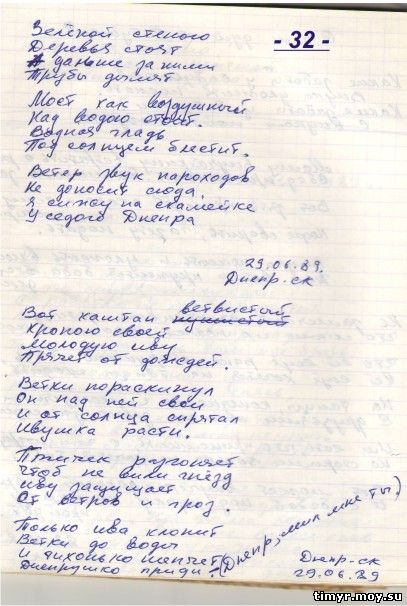 - 32 -
Зелёной стеною
Деревья стоят
А дальше за ними
Трубы дымят
Мост как воздушный
Над водою стоит.
Водная гладь
Под солнцем блестит.
Ветер звук пароходов
Не доносит сюда,
Я сижу на скамейке
У седого Днепра
29.06.89.
Днепр.-ск
Вот каштан ветвистый
пушистый
Кроною своей
Молодую иву
Прячет от дождей.
Ветки пораскинул
Он над ней свои
И от солнца спрятал
Ивушка расти.
Птичек разгоняет
Чтоб не вили гнёзд
Иву защищает
От ветров и гроз.
Только ива клонит
Ветки до воды
И тихонько шепчет
Днепрушко приди! (Днепр, мил мне ты.)
Днепр.-ск
29.06.89
timyr.moy.su